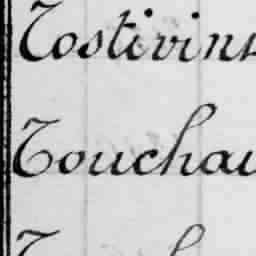 Tostivin
Touchau